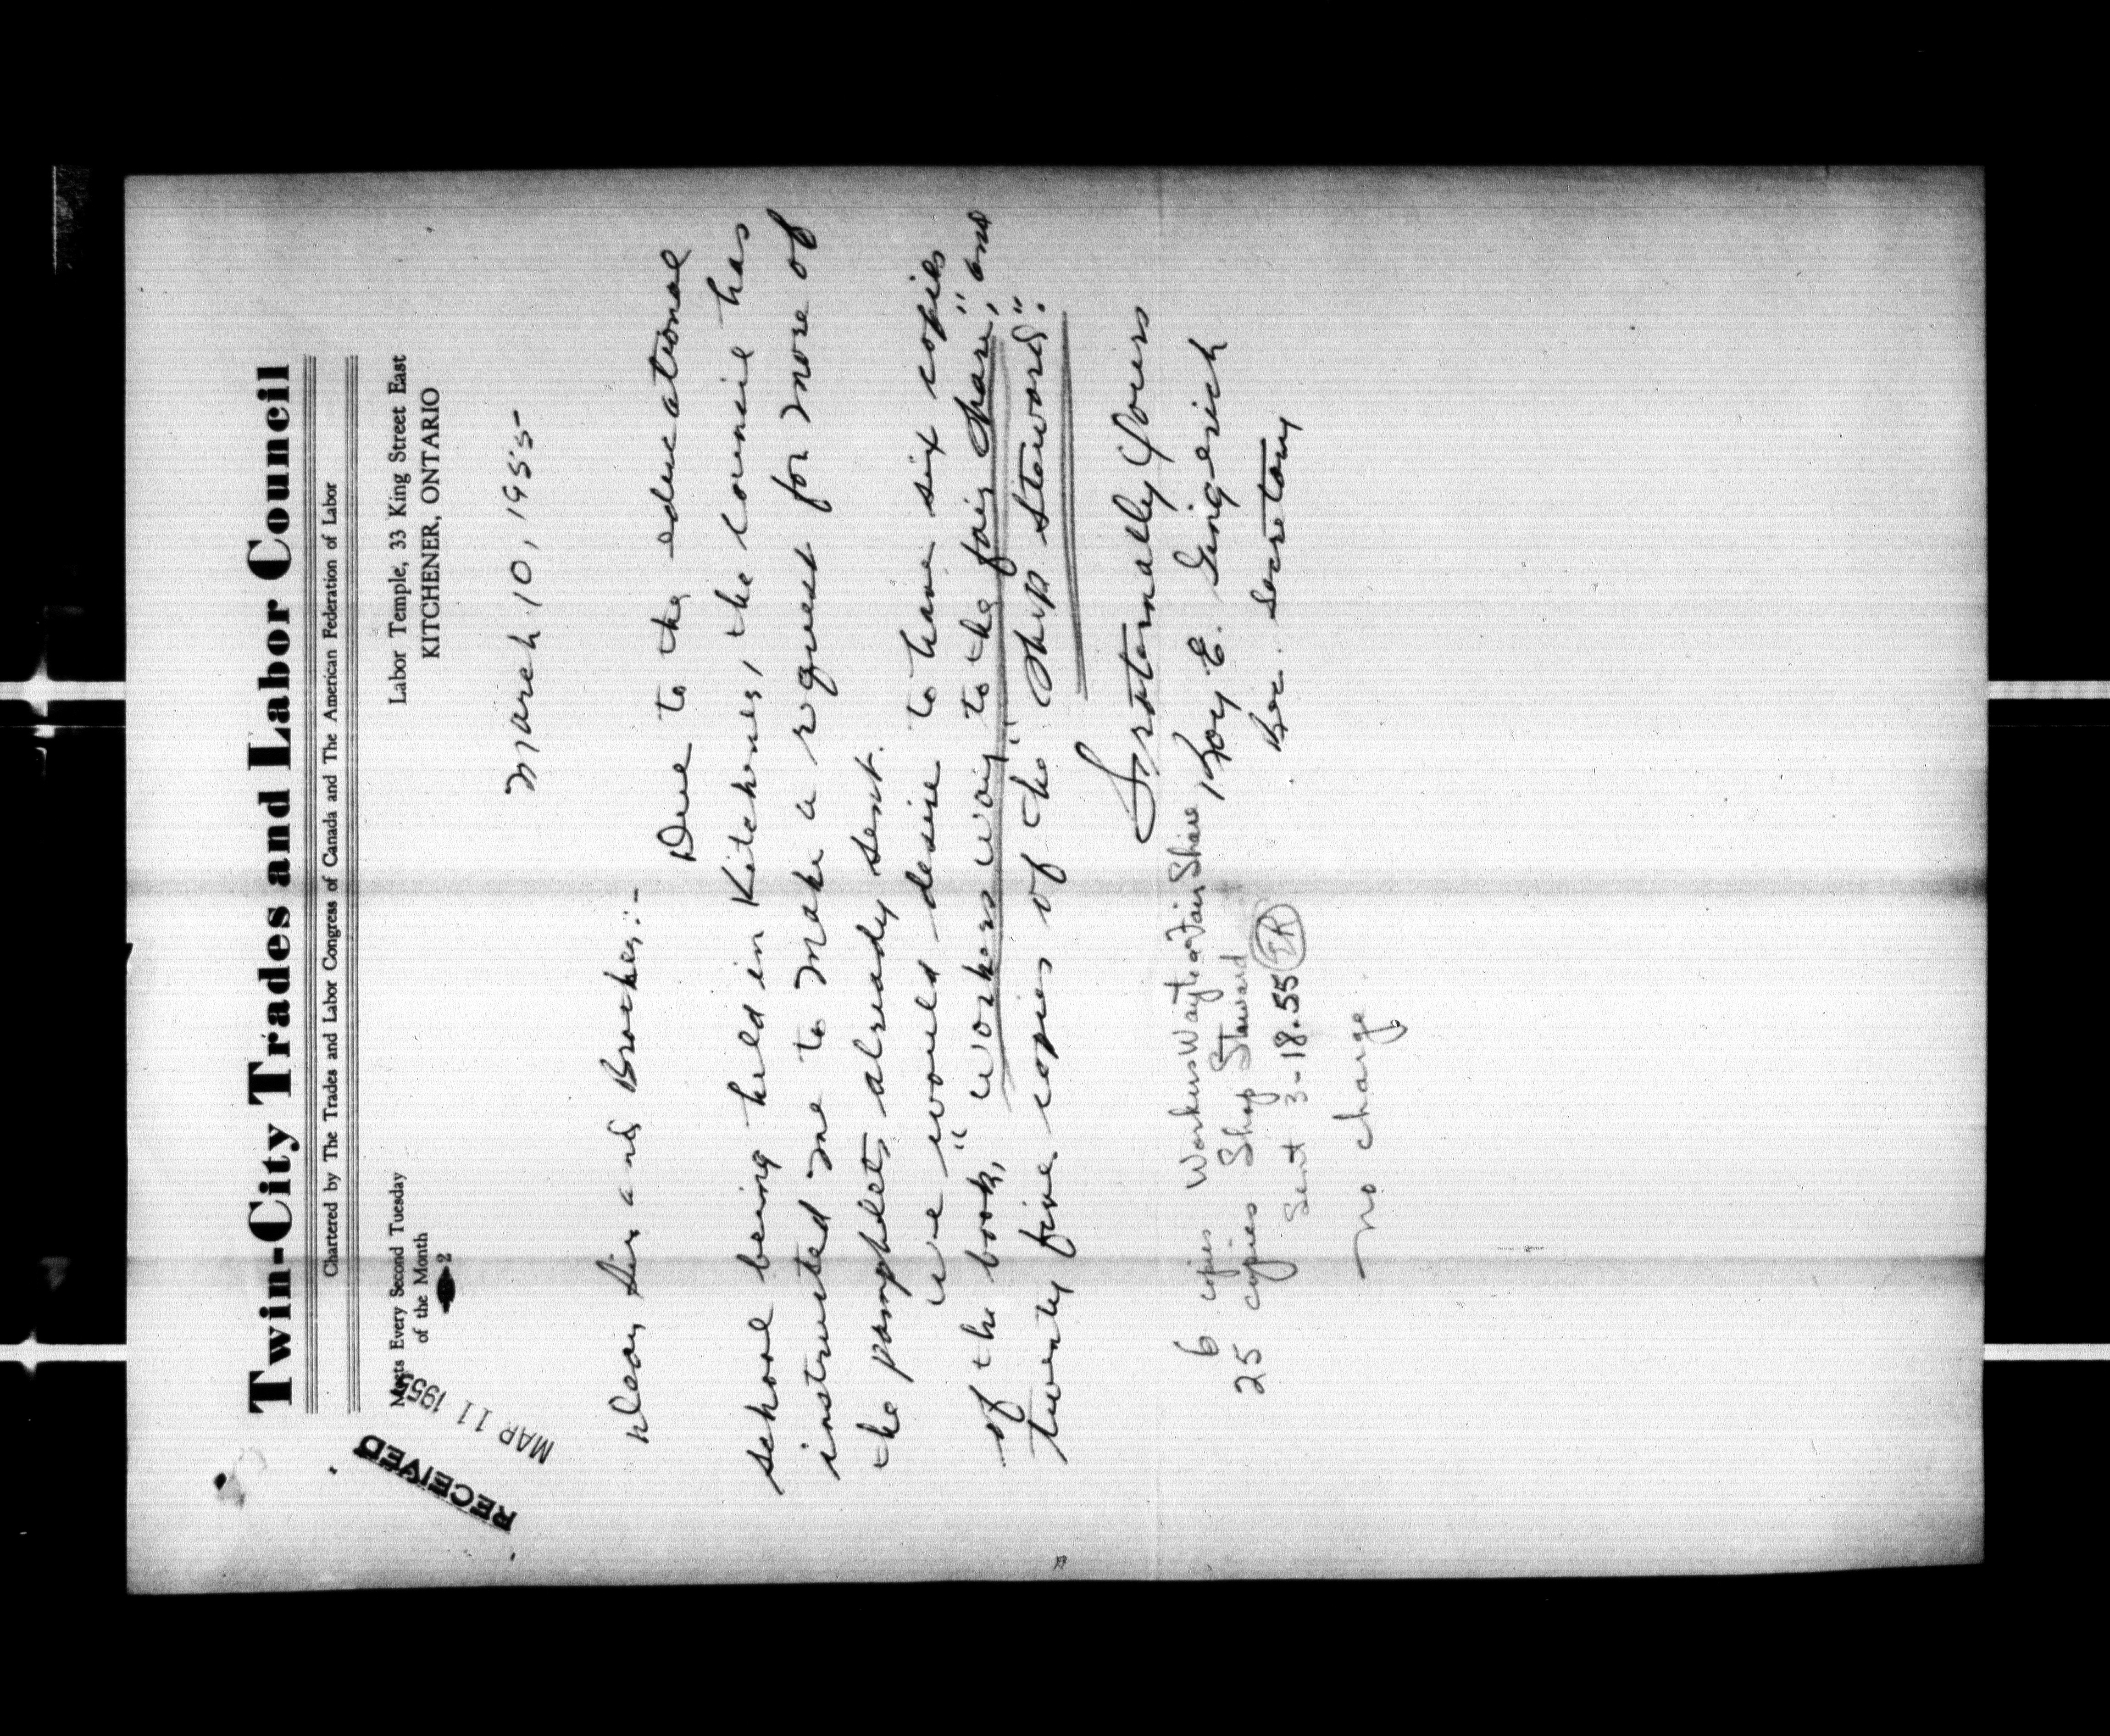 Twin-City Trades and Labor Council
Chartered by The Trades and Labor Congress of Canada and The American Federation of Labor
Meets Every Second Tuesday
of the Month
2
Labor Temple, 33 King Street East
KITCHENER, ONTARIO
RECEIVED
MAR 11 1955
March, 10, 1955
Dear Sir and Brother:-
Due to the educational
school being held in Kitchener, the Council has
instructed me to make a request for more of
the pamphlets already sent.
We would desire to have six copies
of the book, "Workers way to the fair share", and
twenty five copies of the "Shop Steward".
Fraternally Yours
Roy E. Gingerich
Rec. Secretary
6 copies Workers Way to a Fair Share
25 copies Shop Steward
Sent 3-18.55 ER
no charge.